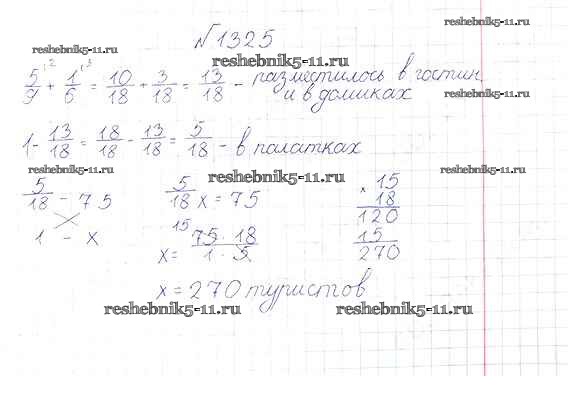 №1325
reshebnik5-11.ru
reshebnik5-11.ru
reshebnik5-11.ru
5/9 + 1/6 = 10/18 + 3/18 = 13/18 - разместилось в гостин
и в домиках
reshebnik5-11.ru
reshebnik5-11.ru
1 - 13/18 = 18/18 - 13/18 = 5/18 - в палатках
reshebnik5-11.ru
reshebnik5-11.ru
reshebnik5-11.ru
5/18 - 75
1 - x
5/18 x = 75
x = 75 · 18 / 1 · 5
15
x = 270 туристов
× 15
18
120
15
270
reshebnik5-11.ru
reshebnik5-11.ru